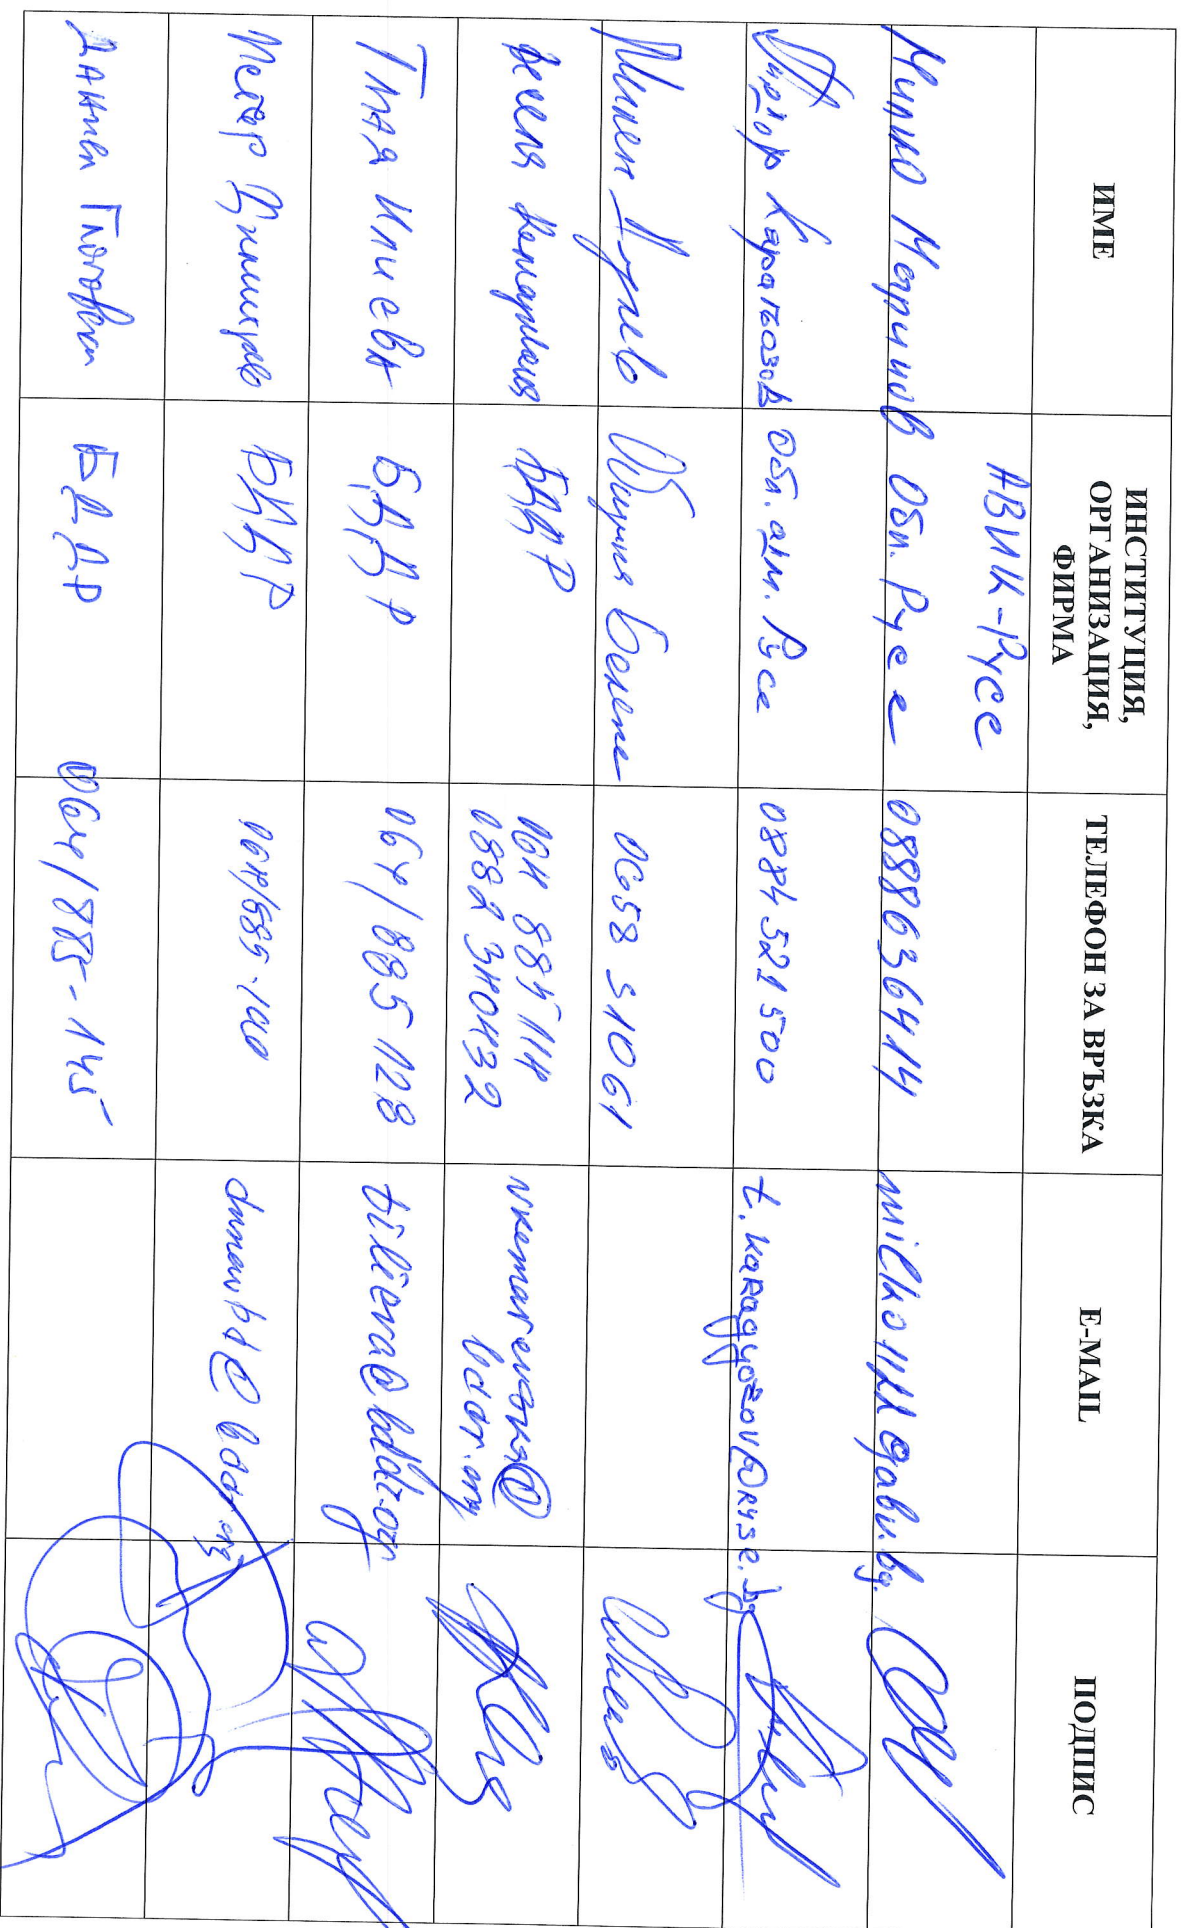 ИМЕ
ИНСТИТУЦИЯ,
ОРГАНИЗАЦИЯ,
ФИРМА
ТЕЛЕФОН ЗА ВРЪЗКА
E-MAIL
ПОДПИС
Милко Маринов
АВИК-Русе
Обл. Русе
0888636414
Тидор Карагьозов
Обл. адм. Русе
0884 521 500
t.karagyozov@ruse.bg
Милен Дулев
Община Белене
0658 31061
Весела
БДДР
064 885 114
0882 340432
bddr.org
Таня Илиева
БДДР
064/885 128
tilieva@bddr.org
Петър Димитров
БДДР
064/885-100
Даниел
БДДР
064/885-145